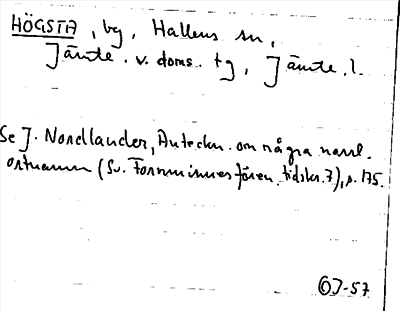 HÖGSTA, by, Hallens sn,
Jämtl. v. doms. tg, Jämtl. l.
Se J. Nordlander, Anteckn. om några norrl.
ortnamn (Sv. Fornminnesfören. tidskr. 7), s. 175.
OJ-57